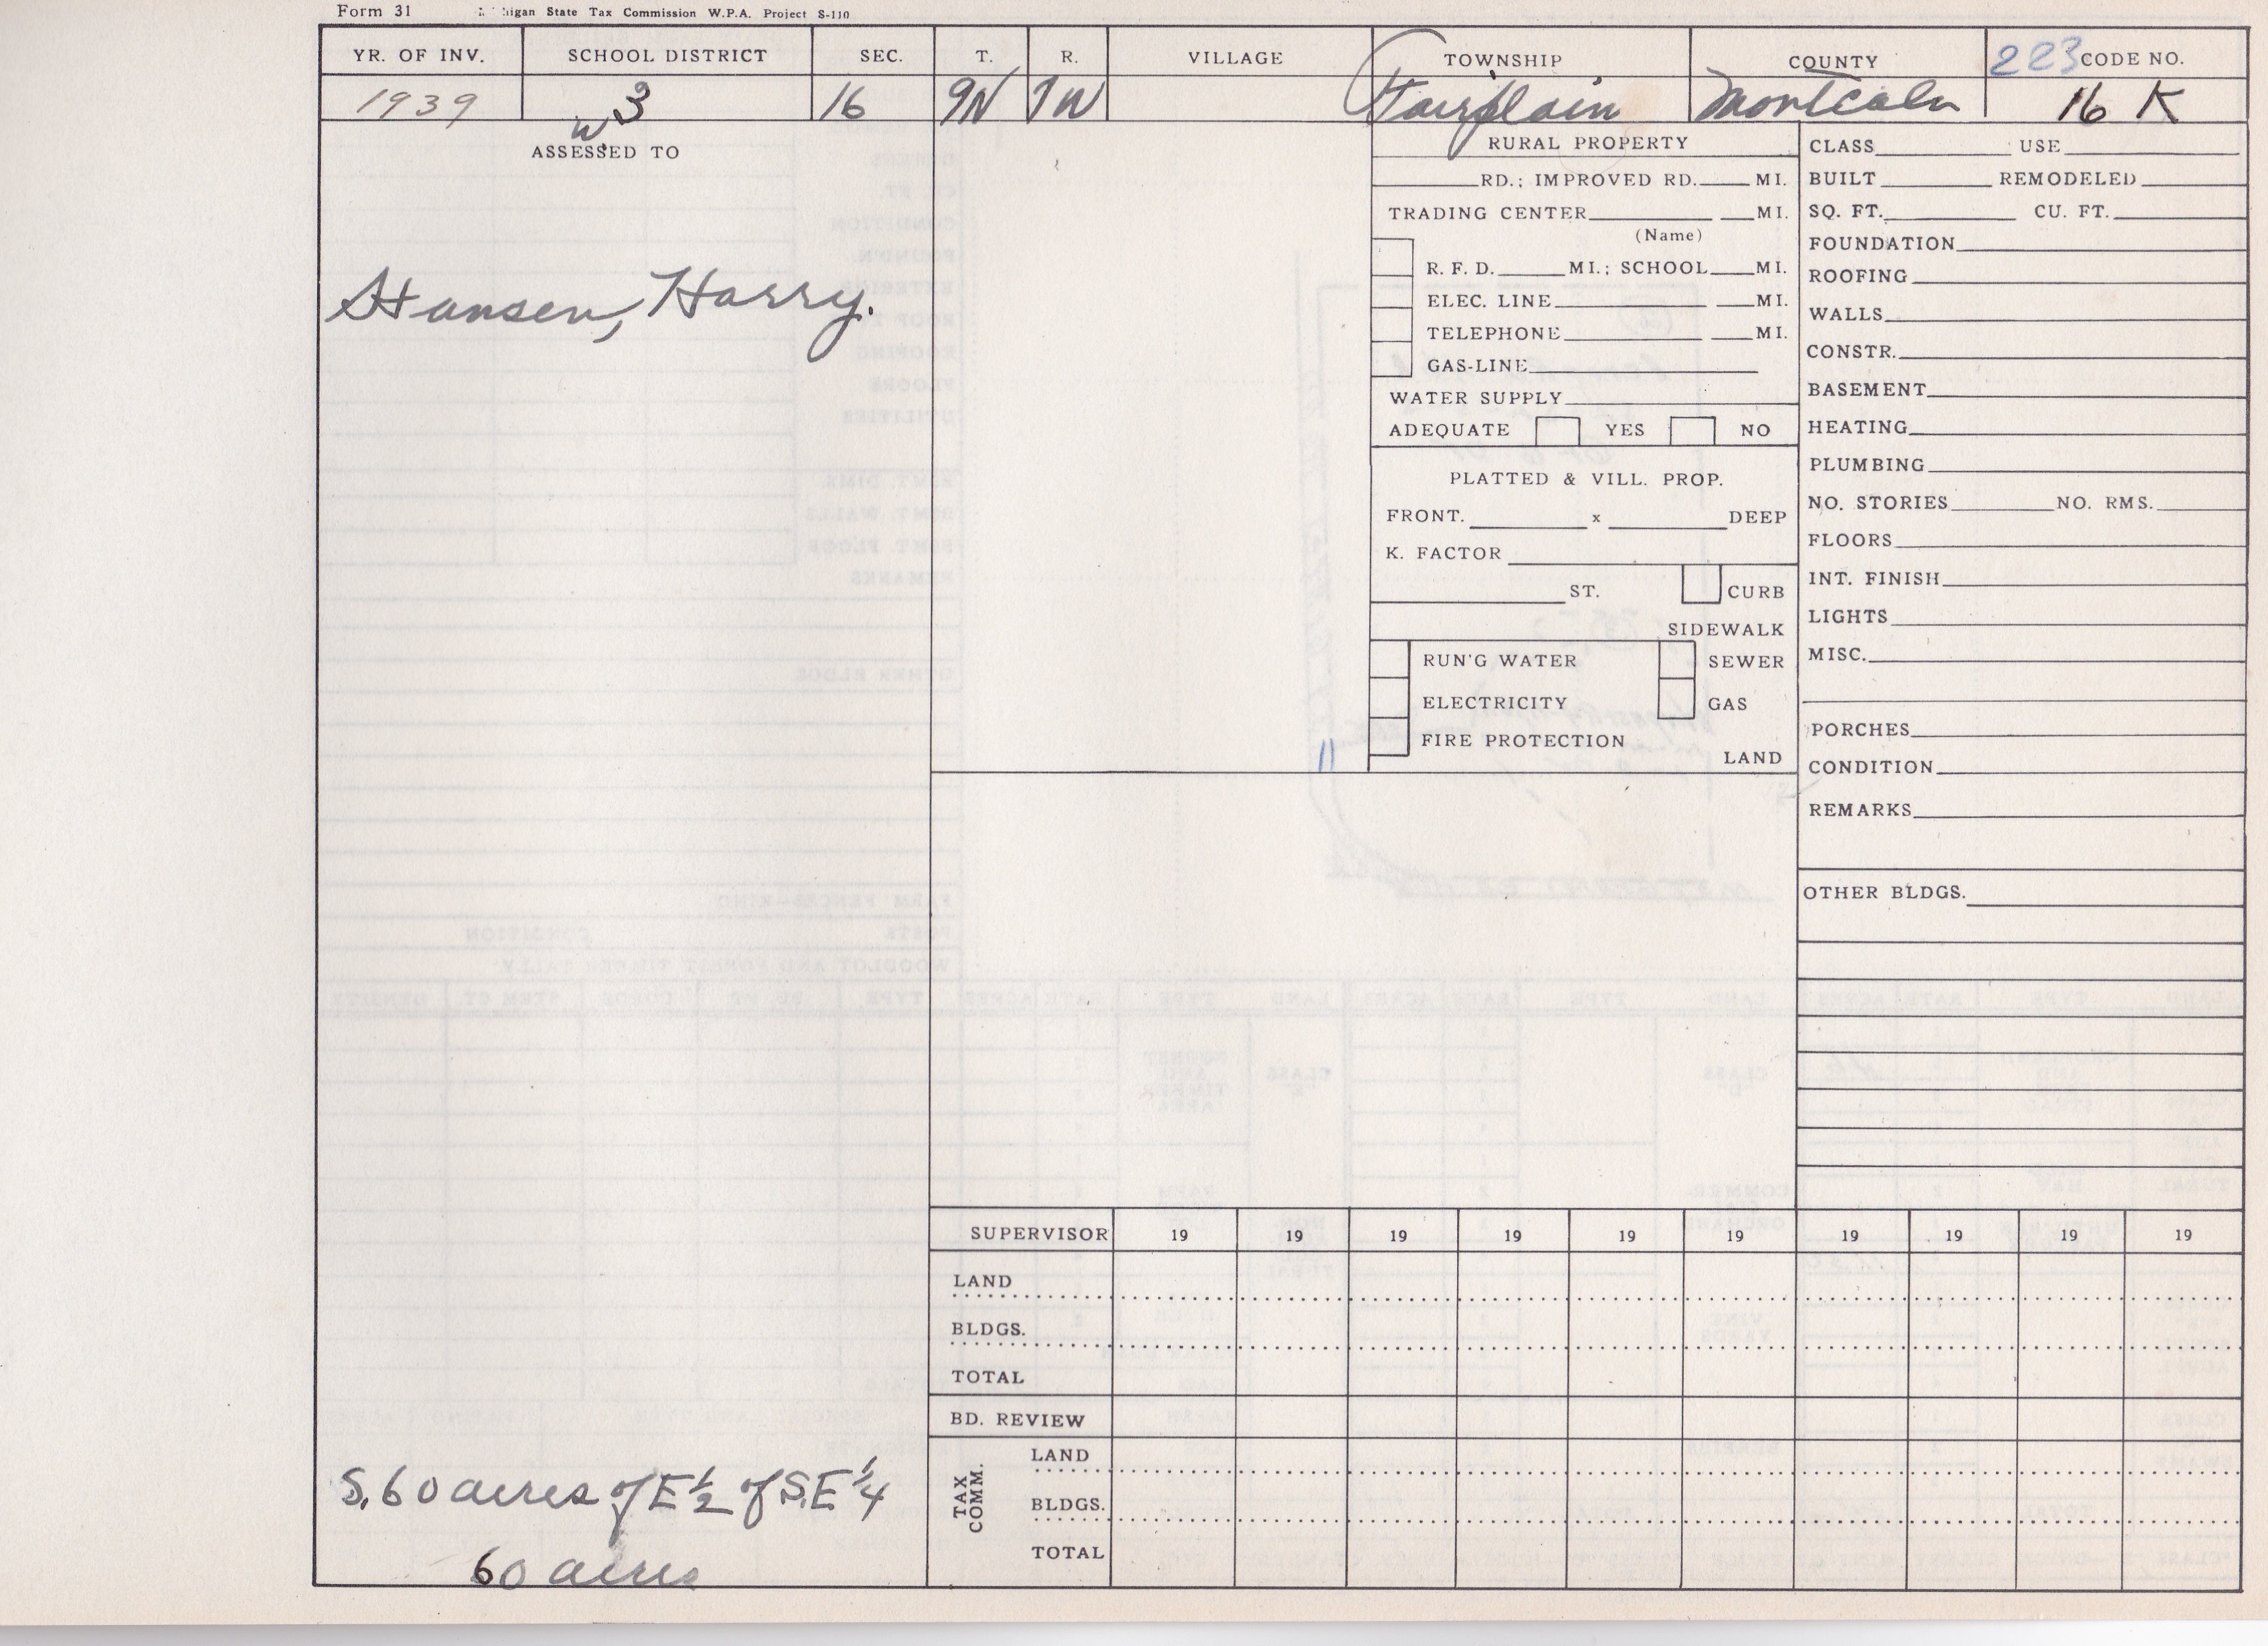 Form 31 Michigan State Tax Commission W.P.A. Project S-110
YR. OF INV. SCHOOL DISTRICT SEC. T. R. VILLAGE TOWNSHIP COUNTY 223 CODE NO.
1939 3 16 9N 7W Fairplain Montcalm 16 K
w
ASSESSED TO
Hansen, Harry.
S. 60 acres of E 1/2 of S.E 1/4
60 acres
RURAL PROPERTY
RD.; IMPROVED RD. MI.
TRADING CENTER MI.
(Name)
R. F. D. MI.; SCHOOL MI.
ELEC. LINE MI.
TELEPHONE MI.
GAS-LINE
WATER SUPPLY
ADEQUATE YES NO
PLATTED & VILL. PROP.
FRONT. x DEEP
K. FACTOR
ST. CURB
SIDEWALK
RUN'G WATER SEWER
ELECTRICITY GAS
FIRE PROTECTION
LAND
11
CLASS USE
BUILT REMODELED
SQ. FT. CU. FT.
FOUNDATION
ROOFING
WALLS
CONSTR.
BASEMENT
HEATING
PLUMBING
NO. STORIES NO. RMS.
FLOORS
INT. FINISH
LIGHTS
MISC.
PORCHES
CONDITION
REMARKS
OTHER BLDGS.
SUPERVISOR 19 19 19 19 19 19 19 19 19 19
LAND
BLDGS.
TOTAL
BD. REVIEW
TAX COMM.
LAND
BLDGS.
TOTAL